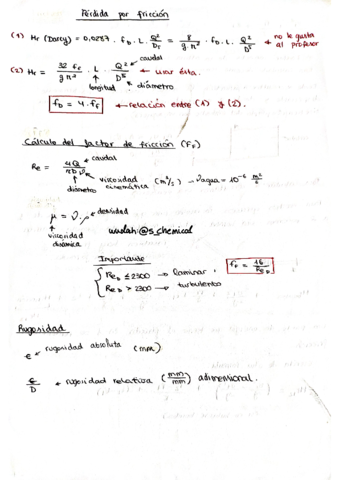 Pérdida por fricción
(1) Hr (Darcy) = 0,0827 · f_D · L · Q²/D⁵ = 8/(g π²) · f_D · L · Q²/D⁵ ← no le gusta al profesor
caudal
(2) Hr = 32 f_F/(g π²) · L · Q²/D⁵ ← usar ésta.
longitud diámetro
f_D = 4 · f_F ← relación entre (1) y (2).
Cálculo del factor de fricción (F_F)
Re = 4Q/(πDν) caudal
diámetro viscosidad cinemática (m²/s) → νagua = 10⁻⁶ m²/s
μ = ν · ρ densidad
viscosidad dinámica
wuolah: @s_chemical
Importante
Re_D ≤ 2300 → laminar, f_F = 16/Re_D
Re_D > 2300 → turbulento
Rugosidad
ε ← rugosidad absoluta (mm)
ε/D ← rugosidad relativa (mm/mm) adimensional.